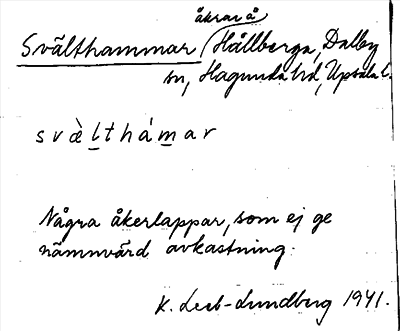 åkrar å
Svälthammar Hållberga, Dalby
sn, Hagunda hd, Uppsala l.
svæ̀l̲thám̲ar
Några åkerlappar, som ej ge
nämnvärd avkastning.
K. Leeb-Lundberg 1941.